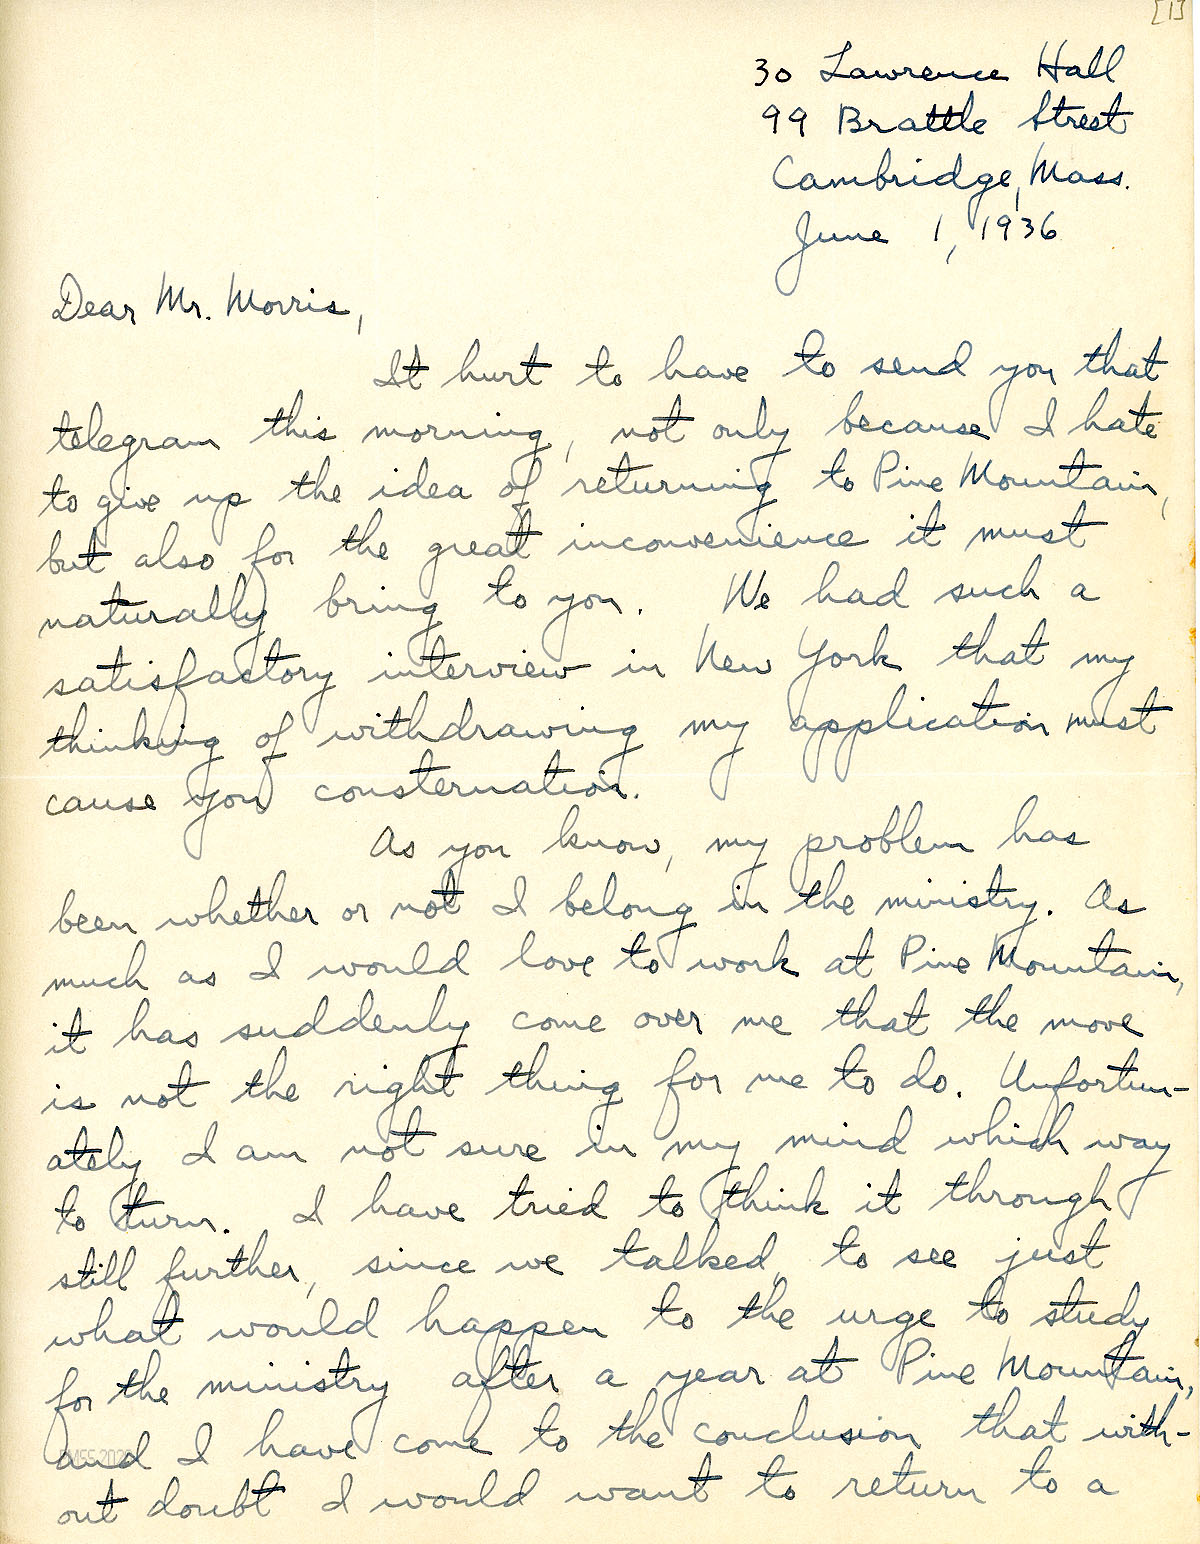 [1]
30 Lawrence Hall
99 Brattle Street
Cambridge, Mass.
June 1, 1936
Dear Mr. Morris,
It hurt to have to send you that
telegram this morning, not only because I hate
to give up the idea of returning to Pine Mountain,
but also for the great inconvenience it must
naturally bring to you. We had such a
satisfactory interview in New York that my
thinking of withdrawing my application must
cause you consternation.
As you know, my problem has
been whether or not I belong in the ministry. As
much as I would love to work at Pine Mountain,
it has suddenly come over me that the move
is not the right thing for me to do. Unfortun-
ately I am not sure in my mind which way
to turn. I have tried to think it through
still further, since we talked, to see just
what would happen to the urge to study
for the ministry after a year at Pine Mountain,
and I have come to the conclusion that with-
out doubt I would want to return to a